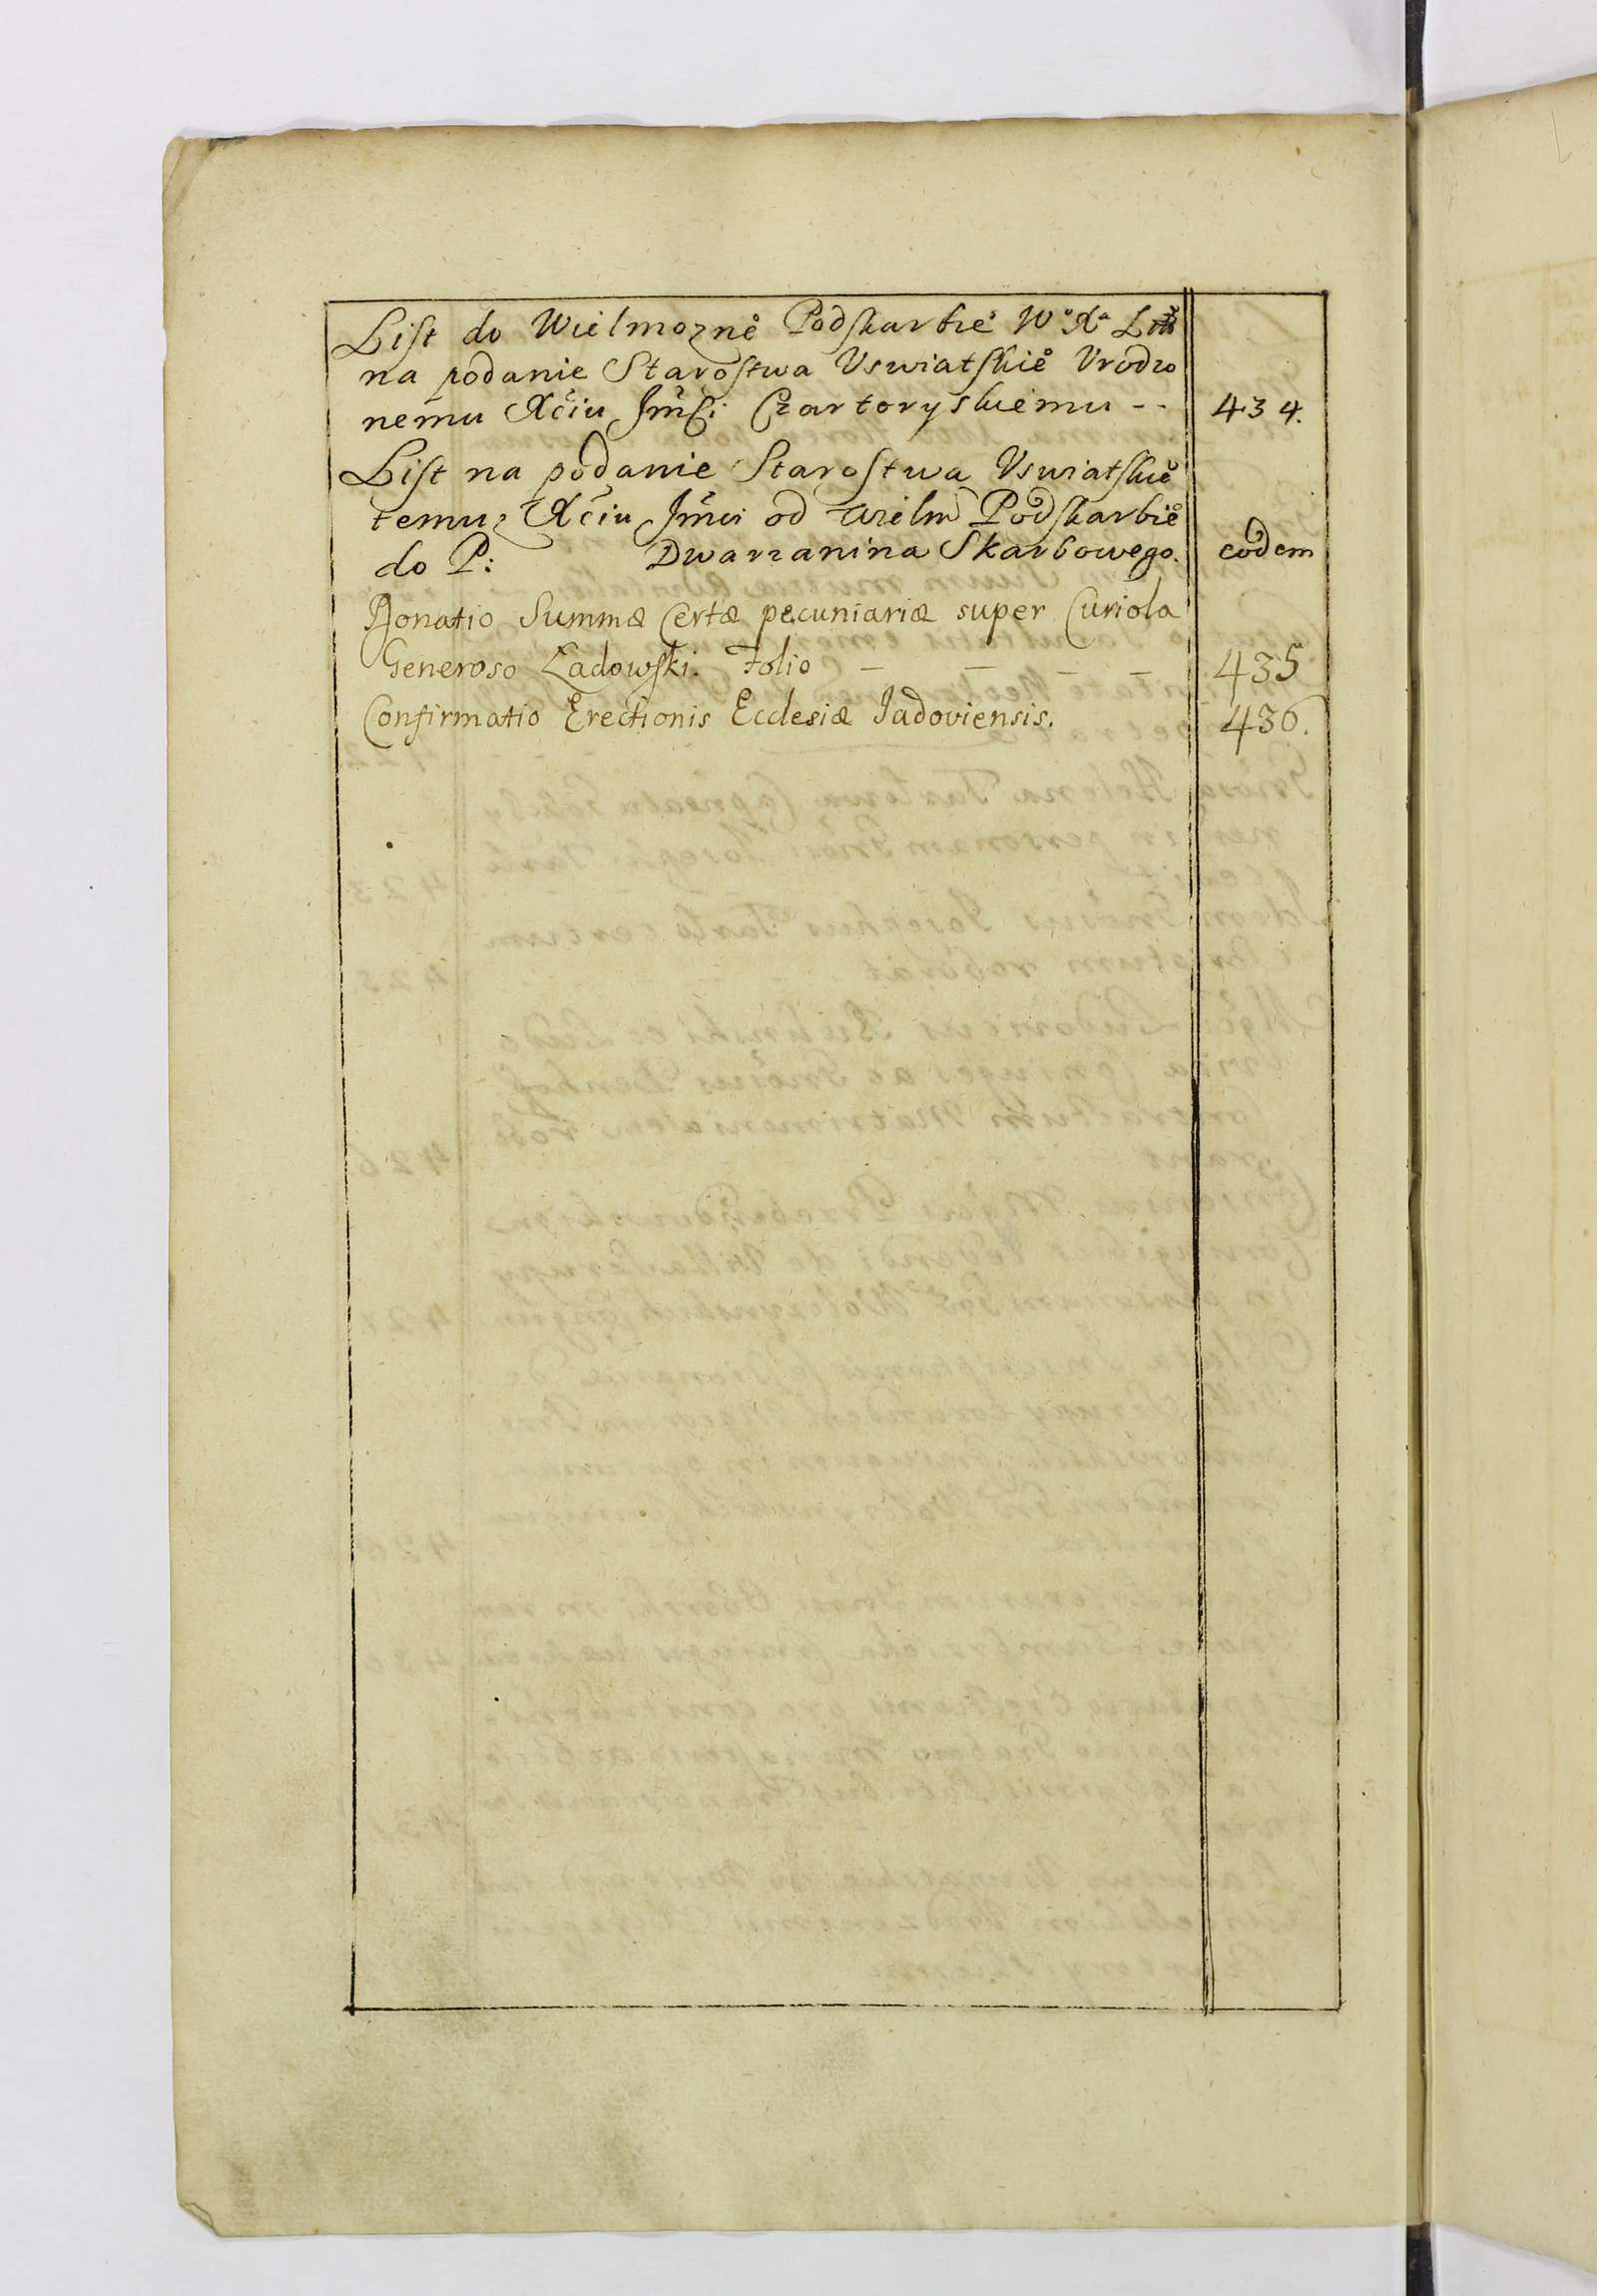 List do Wielmożne° Podskarbie° W° Xa Litt
na podanie Starostwa Uswiatskie° Urodzo
nemu Xciu Jmsci Czartoryskiemu -- 434.
List na podanie Starostwa Uswiatskie°
temuz Xciu Jmci od Wielm Podskarbie°
do P: Dwarzanina Skarbowego. eodem
Donatio Summæ Certæ pecuniariæ super Curiola
Generoso Ladowski. Folio — — — — 435
Confirmatio Erectionis Ecclesiæ Jadoviensis. 436.